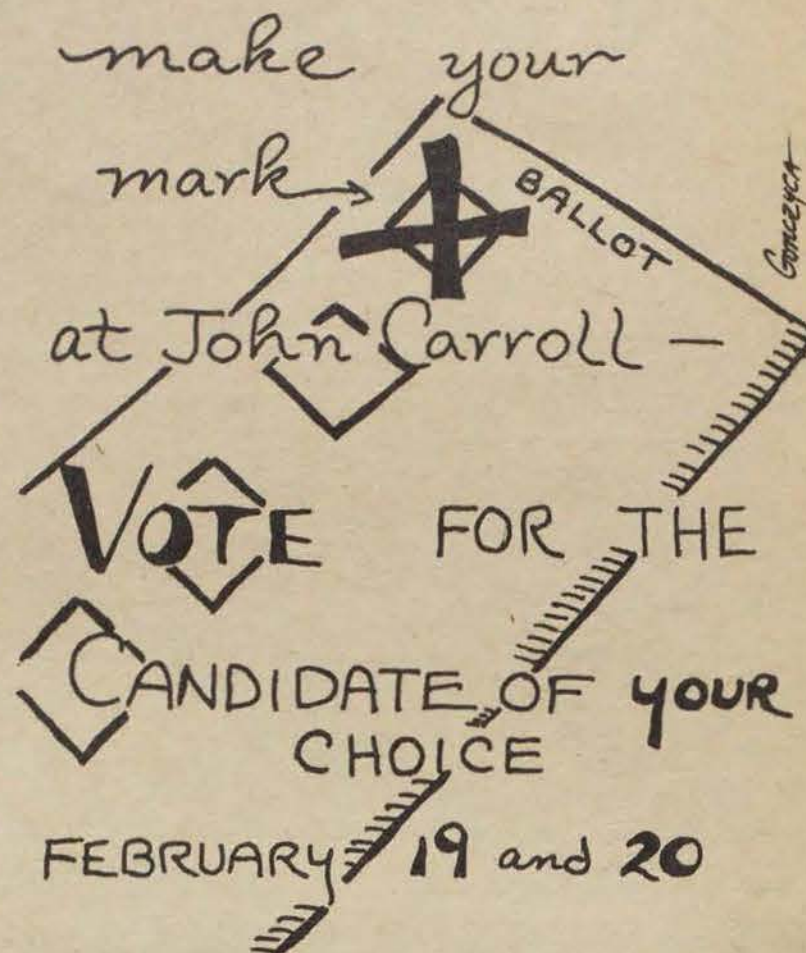 make your
mark
BALLOT
Gonczyca
at John Carroll —
VOTE FOR THE
CANDIDATE OF YOUR
CHOICE
FEBRUARY 19 and 20